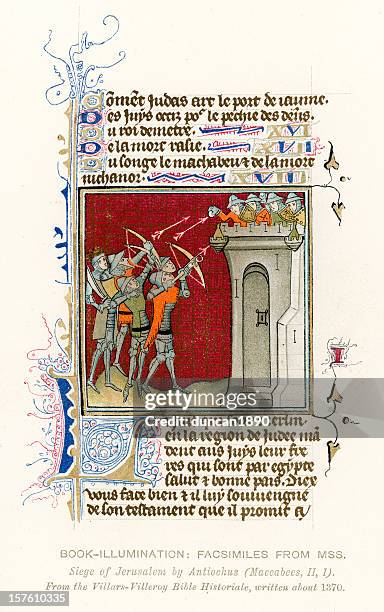 Coment Judas art le port de iaume.
Des Juys occiz pour le pechie des dens.
u roi demetre. XVI
De la mort rasie. XVII
Du songe le machabeu et de la mort
nichanor. XVIII
en la region de Judee mā
dent aus Juys leur fre
res qui sont par egypte
salut et bonne pais. Diex
vous face bien et il luy souuiengne
de son testament que il promist a
gettyimages®
Credit: duncan1890
BOOK-ILLUMINATION: FACSIMILES FROM MSS.
Siege of Jerusalem by Antiochus (Maccabees, II, 1).
From the Villars-Villeroy Bible Historiale, written about 1370.
157610335